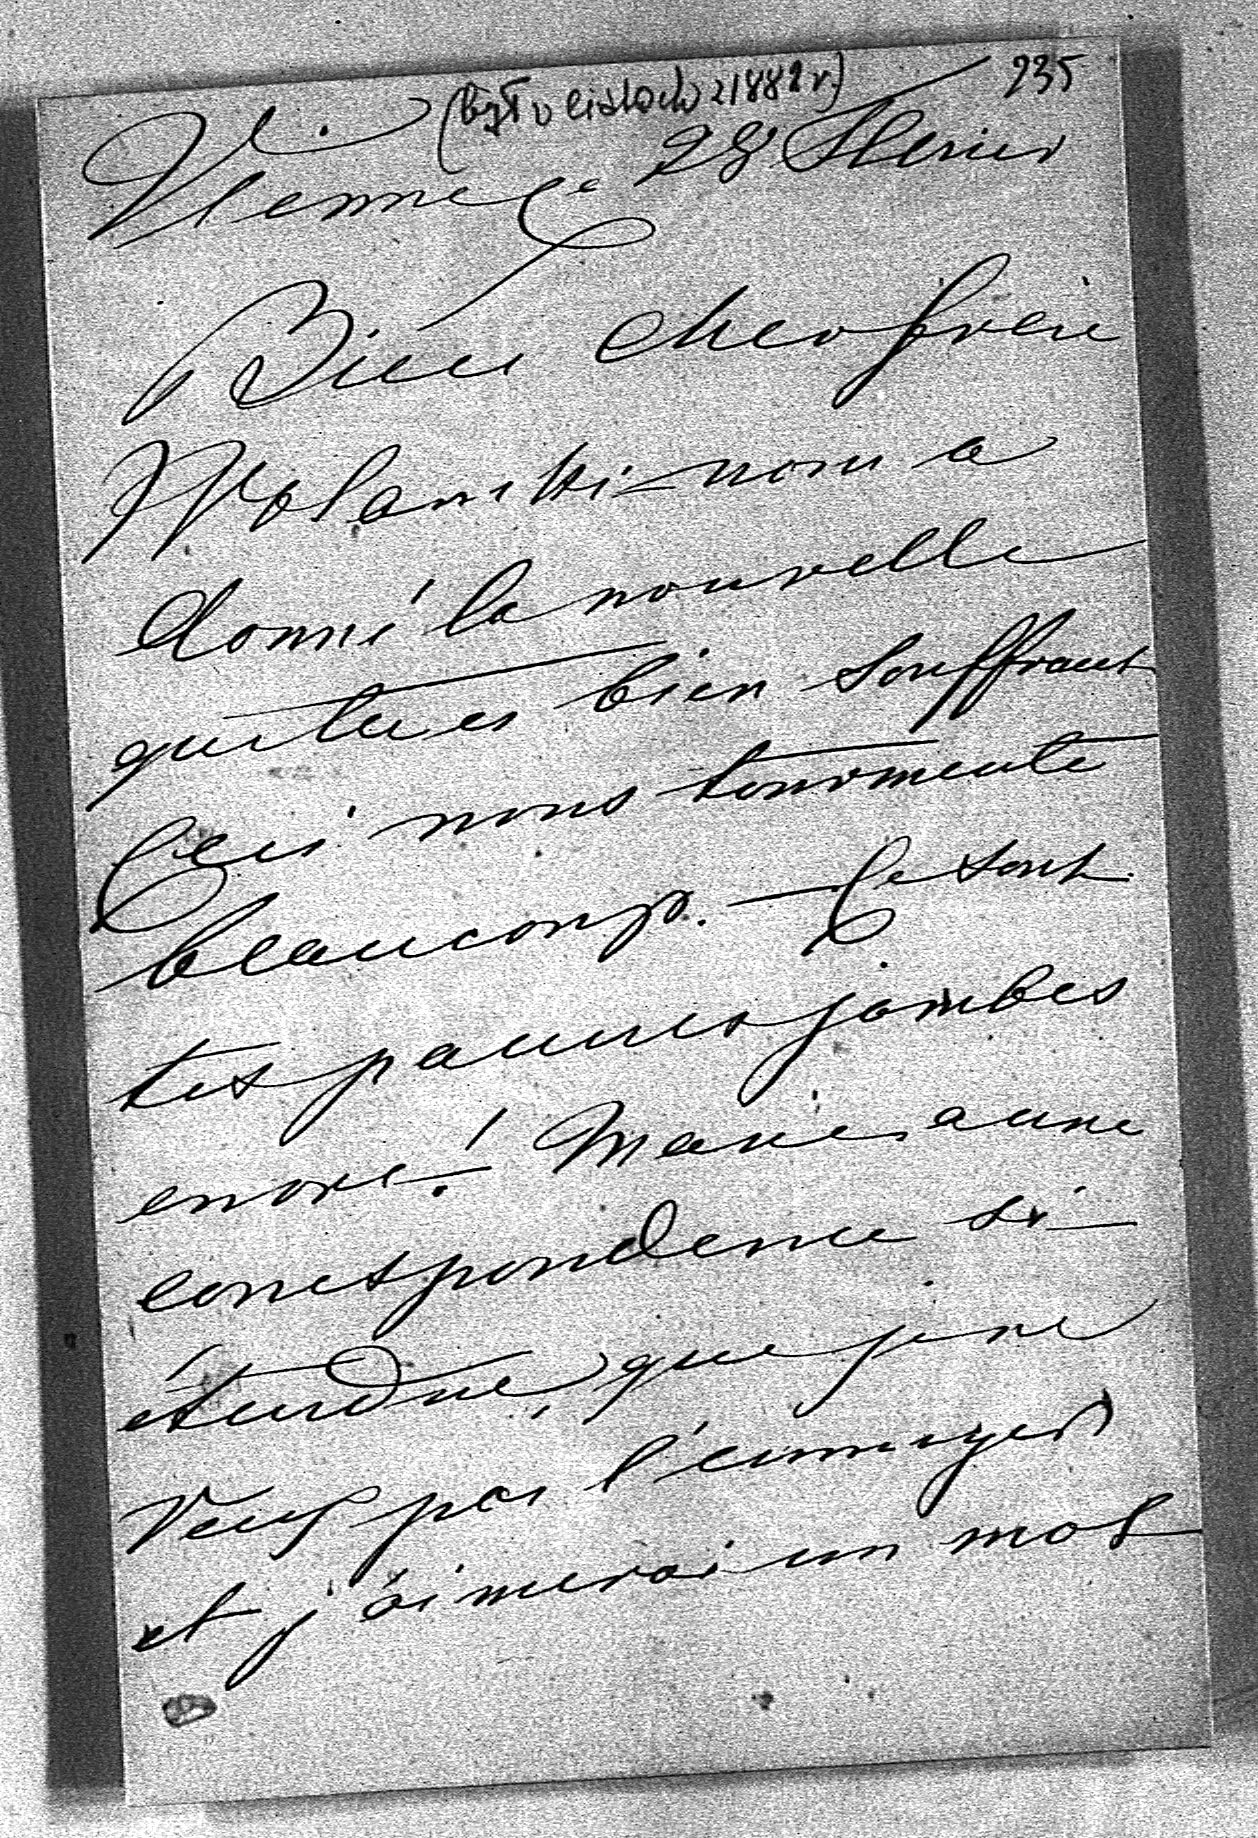 235
(był w listach z 1882 r.)
Vienne ce 28 Fevrier
Bien cher frère
Wolanski nous a
donné la nouvelle
que tu es bien souffrant
Ceci nous tourmente
beaucoup. — Ce sont
tes pauvres jambes
encore! Marie a une
correspondence si
étendue, que je ne
veux pas l'ennuyer
et j'aimerai un mot